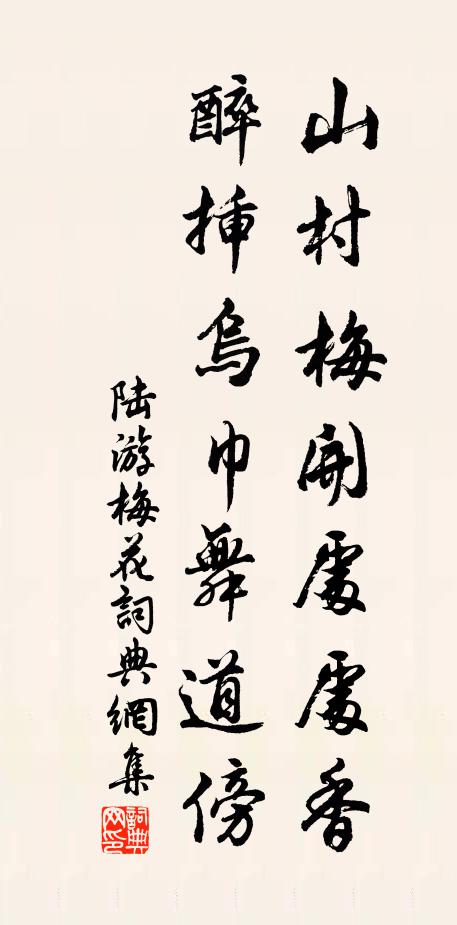 山村梅開處處香
醉插烏巾舞道傍
陆游梅花詞典網集
詞典网印